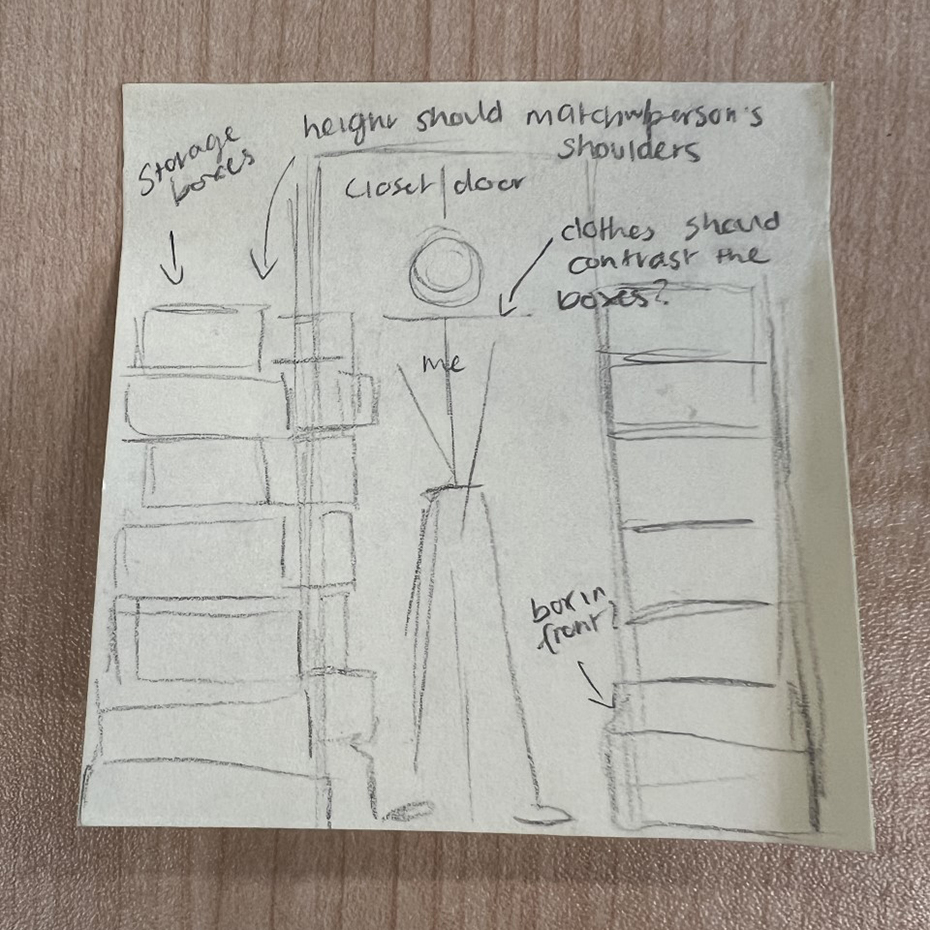 Storage
boxes
height should match w/person's
shoulders
closet door
clothes should
contrast the
boxes?
me
box in
front?